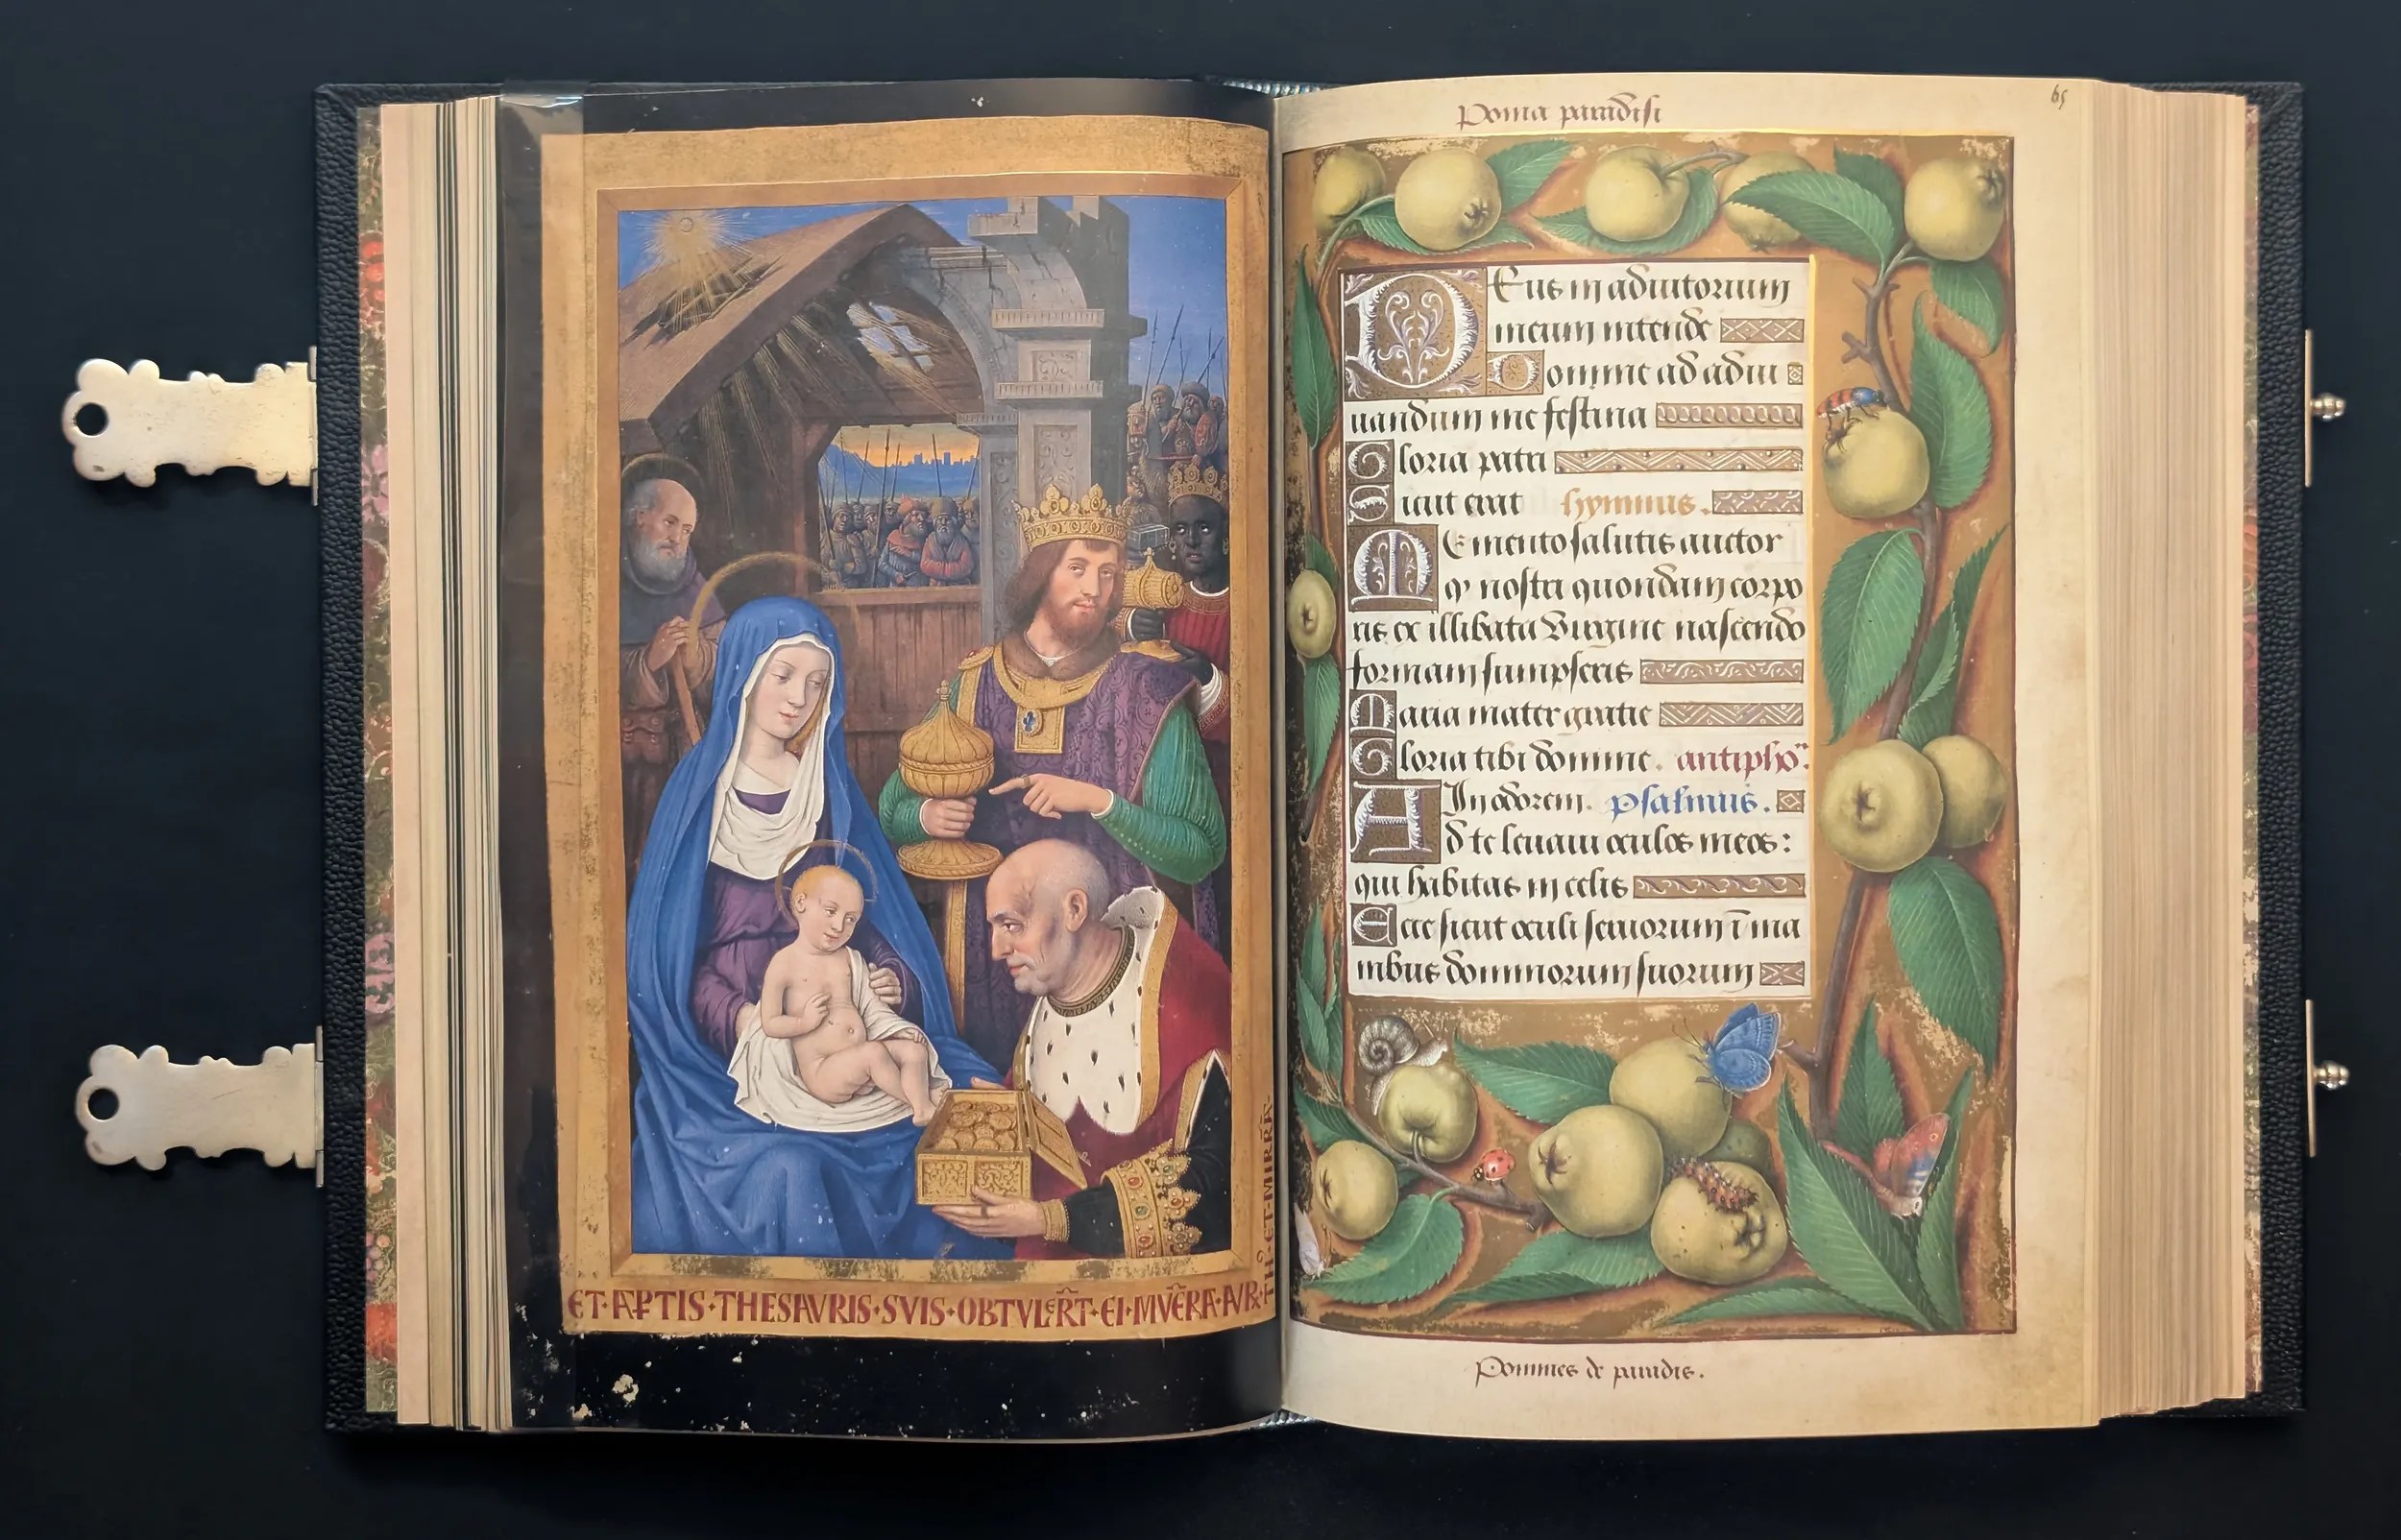 ET·APTIS·THESAVRIS·SVIS·OBTVLERT·EI·MVERA·AVR
TH·ET·MIRRA·
Poma paradisi
65
Deus in adiutorium
meum intende
Domine ad adiu
uandum me festina
Gloria patri
Sicut erat hymnus.
Memento salutis auctor
q nostri quondam corpo
ris ex illibata Virgine nascendo
formam sumpseris
Maria mater gratie
Gloria tibi domine. antipho.
In odorem. psalmus.
Ad te leuaui oculos meos:
qui habitas in celis
Ecce sicut oculi seruorum ī ma
nibus dominorum suorum
Pommes de paradis.